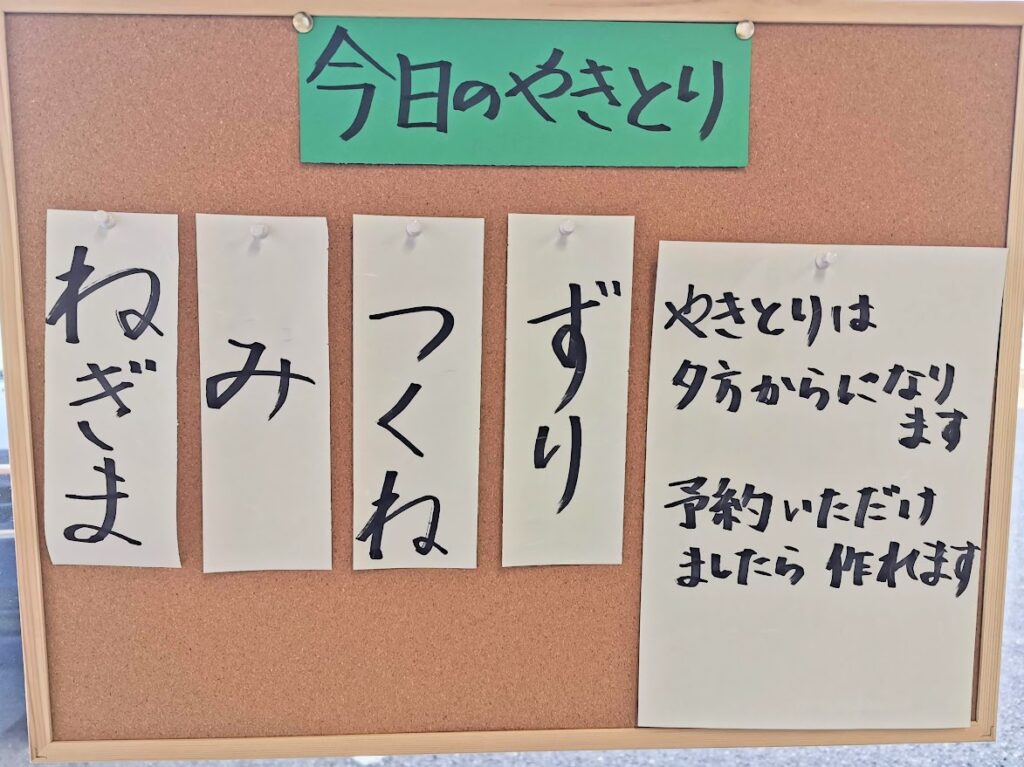 今日のやきとり
ねぎま
み
つくね
ずり
やきとりは
夕方からになり
ます
予約いただけ
ましたら 作れます